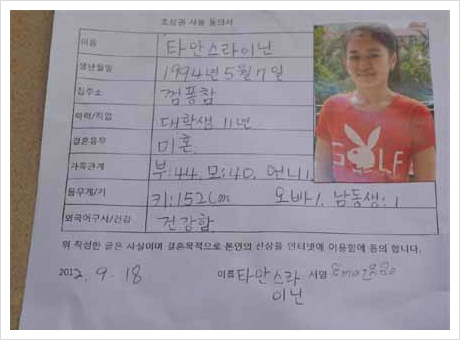 초상권 사용 동의서
이름 타안스라이닌
생년월일 1994년 5월 7일
집주소 껌퐁참
학력/직업 대학생 11년
결혼유무 미혼
가족관계 부:44, 모:40, 언니1,
몸무게/키 키:152Cm 오빠1, 남동생:1
외국어구사/건강 건강함
위 작성한 글은 사실이며 결혼목적으로 본인의 신상을 인터넷에 이용함에 동의 합니다.
2012. 9. 18 이름 타안스라 서명
이닌
GOLF